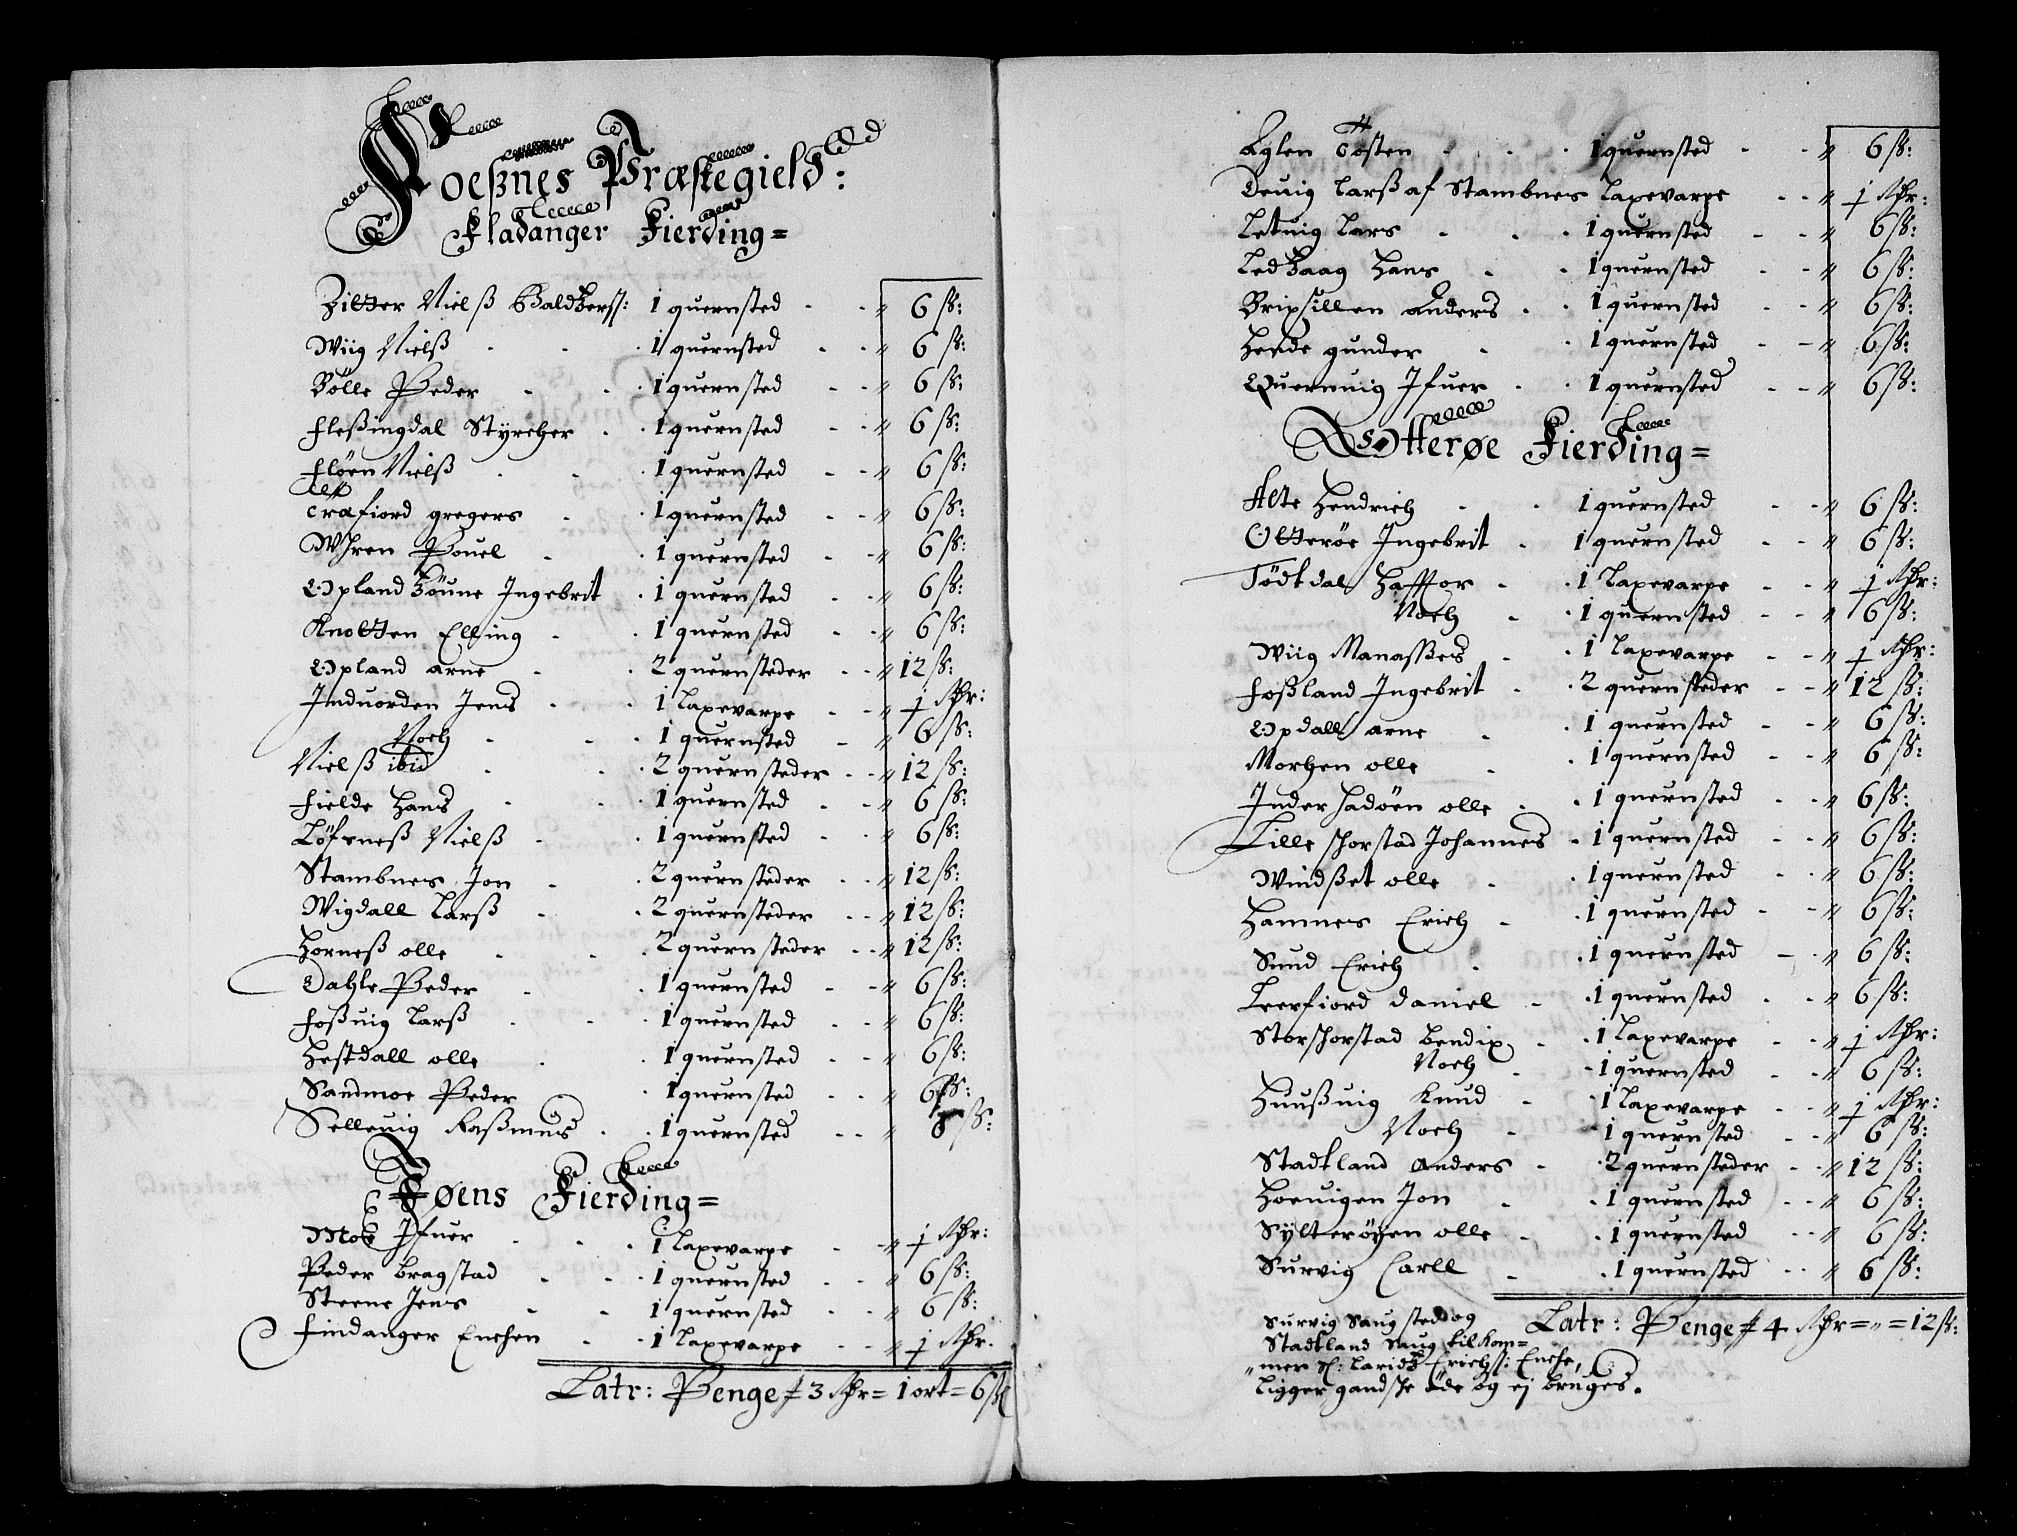 Foeßnes Præstegield:
Fladanger Fierding=
Zitter Nielß Baldzerss: 1 quernsted " 6 ß:
Wiig Nielß 1 quernsted " 6 ß:
Bölle Peder 1 quernsted " 6 ß:
Fleßingdal Styrcher 1 quernsted " 6 ß:
Fløen Nielß 1 quernsted " 6 ß:
Träfiord gregers 1 quernsted " 6 ß:
Whren Pouel 1 quernsted " 6 ß:
Opland Ingebrit 1 quernsted " 6 ß:
Knotten Elling 1 quernsted " 6 ß:
Opland arne 2 quernsteder " 12 ß:
Induorden Jens 1 Laxevarpe " j Rdr:
Noch 1 quernsted " 6 ß:
Nielß ibid 2 quernsteder " 12 ß:
Fielde Hans 1 quernsted " 6 ß:
Löfsneß Nielß 1 quernsted " 6 ß:
Stambnes Jon 2 quernsteder " 12 ß:
Wigdall Larß 2 quernsteder " 12 ß:
Horneß olle 2 quernsteder " 12 ß:
Dahle Peder 1 quernsted " 6 ß:
Foßuig Larß 1 quernsted " 6 ß:
Hestdall olle 1 quernsted " 6 ß:
Sandmoe Peder 1 quernsted " 6 ß:
Selleuig Raßmus 1 quernsted " 6 ß:
Føens Fierding=
Moe Ifuer 1 Laxevarpe " j Rdr:
Peder Bragstad 1 quernsted " 6 ß:
Steene Jens 1 quernsted " 6 ß:
Findanger Enchen 1 Laxevarpe " j Rdr.
Latr: Penge # 3 Rdr = 1 ort = 6 ß
Aglen Tosten 1 quernsted " 6 ß:
Deuig Larß af Stambnes Laxevarpe " j Rdr:
Letuig Lars 1 quernsted " 6 ß:
Ledhaag Hans 1 quernsted " 6 ß:
Brixsillen anders 1 quernsted " 6 ß:
Hende gunder 1 quernsted " 6 ß:
Quernuig Ifuer 1 quernsted " 6 ß:
Otterøe Fierding=
Alte Hendrich 1 quernsted " 6 ß:
Otterøe Ingebrit 1 quernsted " 6 ß:
Tödtdal Hafftor 1 Laxevarpe " j Rdr:
Noch 1 quernsted " 6 ß:
Wiig Manasses 1 Laxevarpe " j Rdr:
Foßland Ingebrit 2 quernsteder " 12 ß:
Opdall arne 1 quernsted " 6 ß:
Morchen olle 1 quernsted " 6 ß:
Inder hadöen olle 1 quernsted " 6 ß:
Lille schorstad Johannes 1 quernsted " 6 ß:
Windßet olle 1 quernsted " 6 ß:
Hamnes Erich 1 quernsted " 6 ß:
Sund Erich 1 quernsted " 6 ß:
Leerfiord daniel 1 quernsted " 6 ß:
Storschorstad bendix 1 Laxevarpe " j Rdr:
Noch 1 quernsted " 6 ß:
Huußuig Knud 1 Laxevarpe " j Rdr:
Noch 1 quernsted " 6 ß:
Stadtland anders 2 quernsteder " 12 ß:
Hoeuigen Jon 1 quernsted " 6 ß:
Sylterøyen olle 1 quernsted " 6 ß:
Survig Carll 1 quernsted " 6 ß:
Latr: Penge # 4 Rdr = " = 12 ß:
Survig Saug sted og
Stadtland Saug tilkom=
mer Sl: Laridz Erichss: Enche,
Ligger gandsche öde og ej bruges.